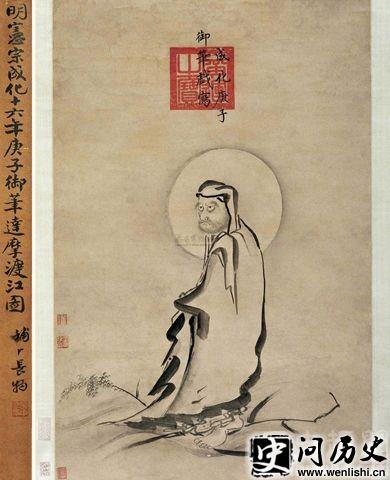 明憲宗成化十六年庚子御筆達摩渡江圖
成化庚子
御筆戲寫
史问历史
www.wenlishi.cn